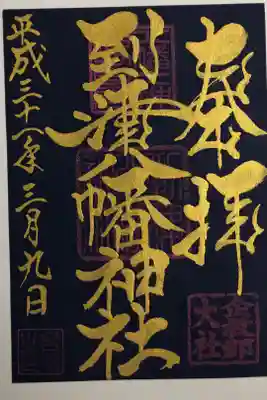 奉拝
大社
到津八幡神社
平成三十一年三月九日